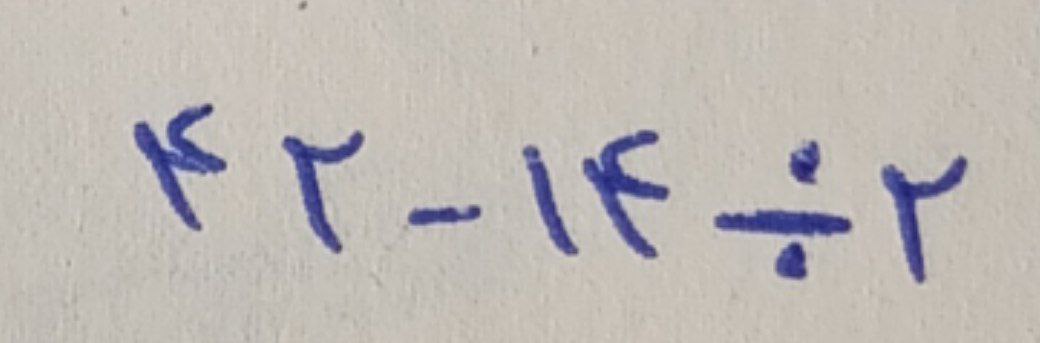 ۴۲-۱۴÷۲